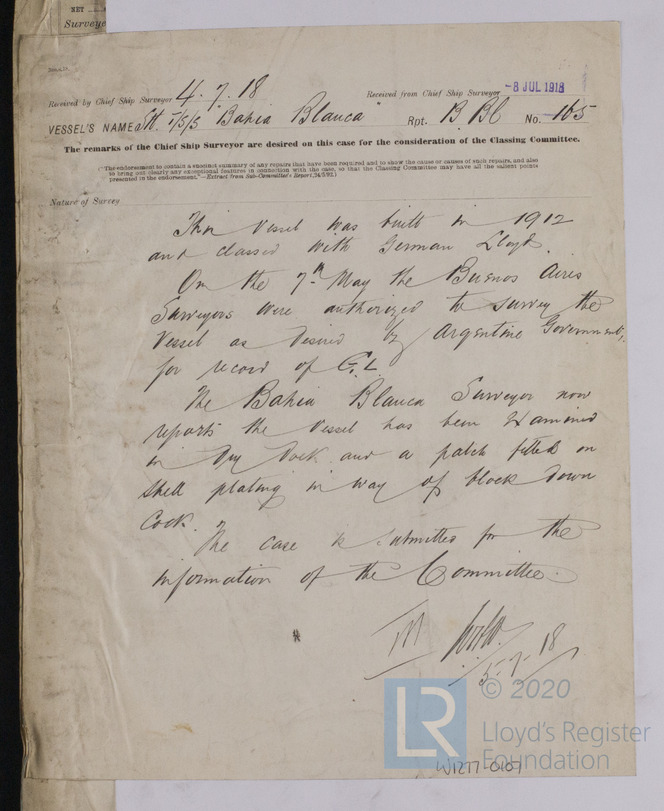 NET
Surveyo
Received by Chief Ship Surveyor 4.7.18
Received from Chief Ship Surveyor -8 JUL 1918
VESSEL'S NAME Bahia Blanca Rpt. B Bl No. 165
The remarks of the Chief Ship Surveyor are desired on this case for the consideration of the Classing Committee.
("The endorsement to contain a succinct summary of any repairs that have been required and to show the cause or causes of such repairs, and also
to bring out clearly any exceptional features in connection with the case, so that the Classing Committee may have all the salient points
presented in the endorsement."—Extract from Sub-Committee's Report, 24/5/92.)
Nature of Survey
This Vessel was built in 1912
and classed with German Lloyd.
On the 7th May the Buenos Aires
Surveyors were authorized to survey the
Vessel as desired by Argentine Government,
for record of G.L
The Bahia Blanca Surveyor now
reports the Vessel has been Examined
in Dry Dock and a patch fitted on
shell plating in way of block down
Cock.
The case is submitted for the
information of the Committee.
5-7-18
LR
© 2020
Lloyd's Register
Foundation
W1277-0107